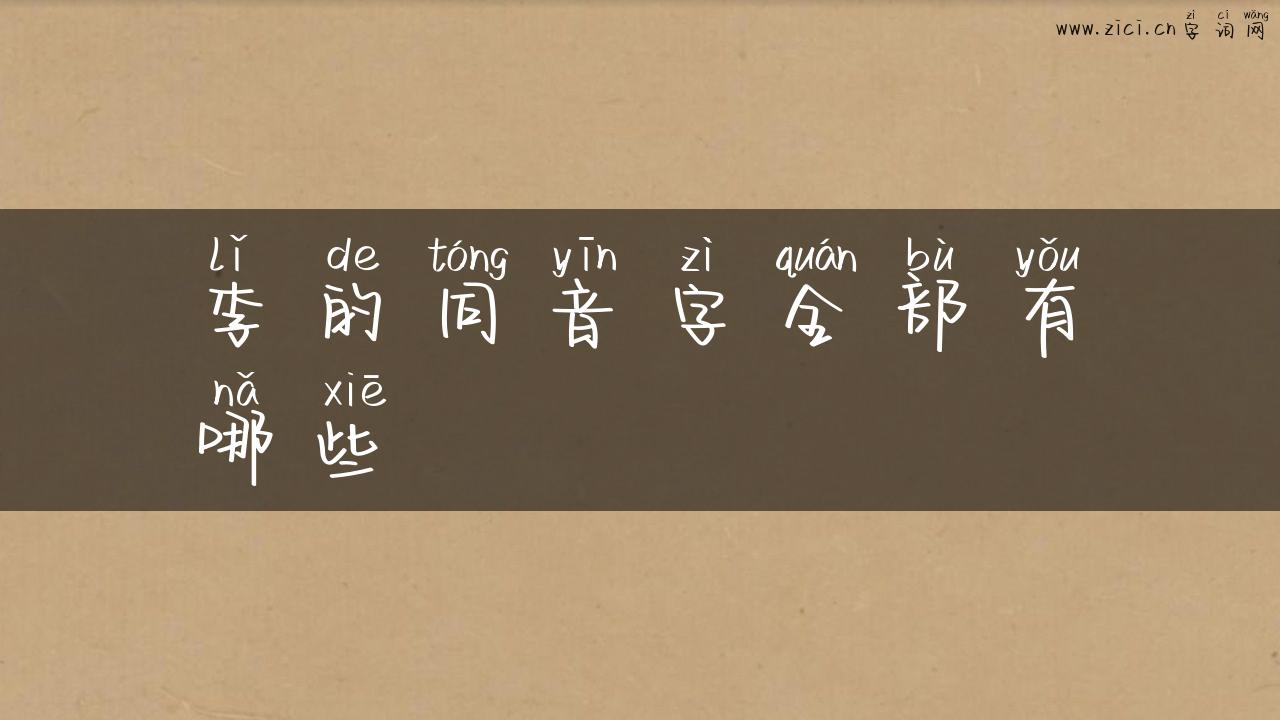 zì cí wǎng
www.zici.cn 字词网
lǐ de tóng yīn zì quán bù yǒu
李的同音字全部有
nǎ xiē
哪些